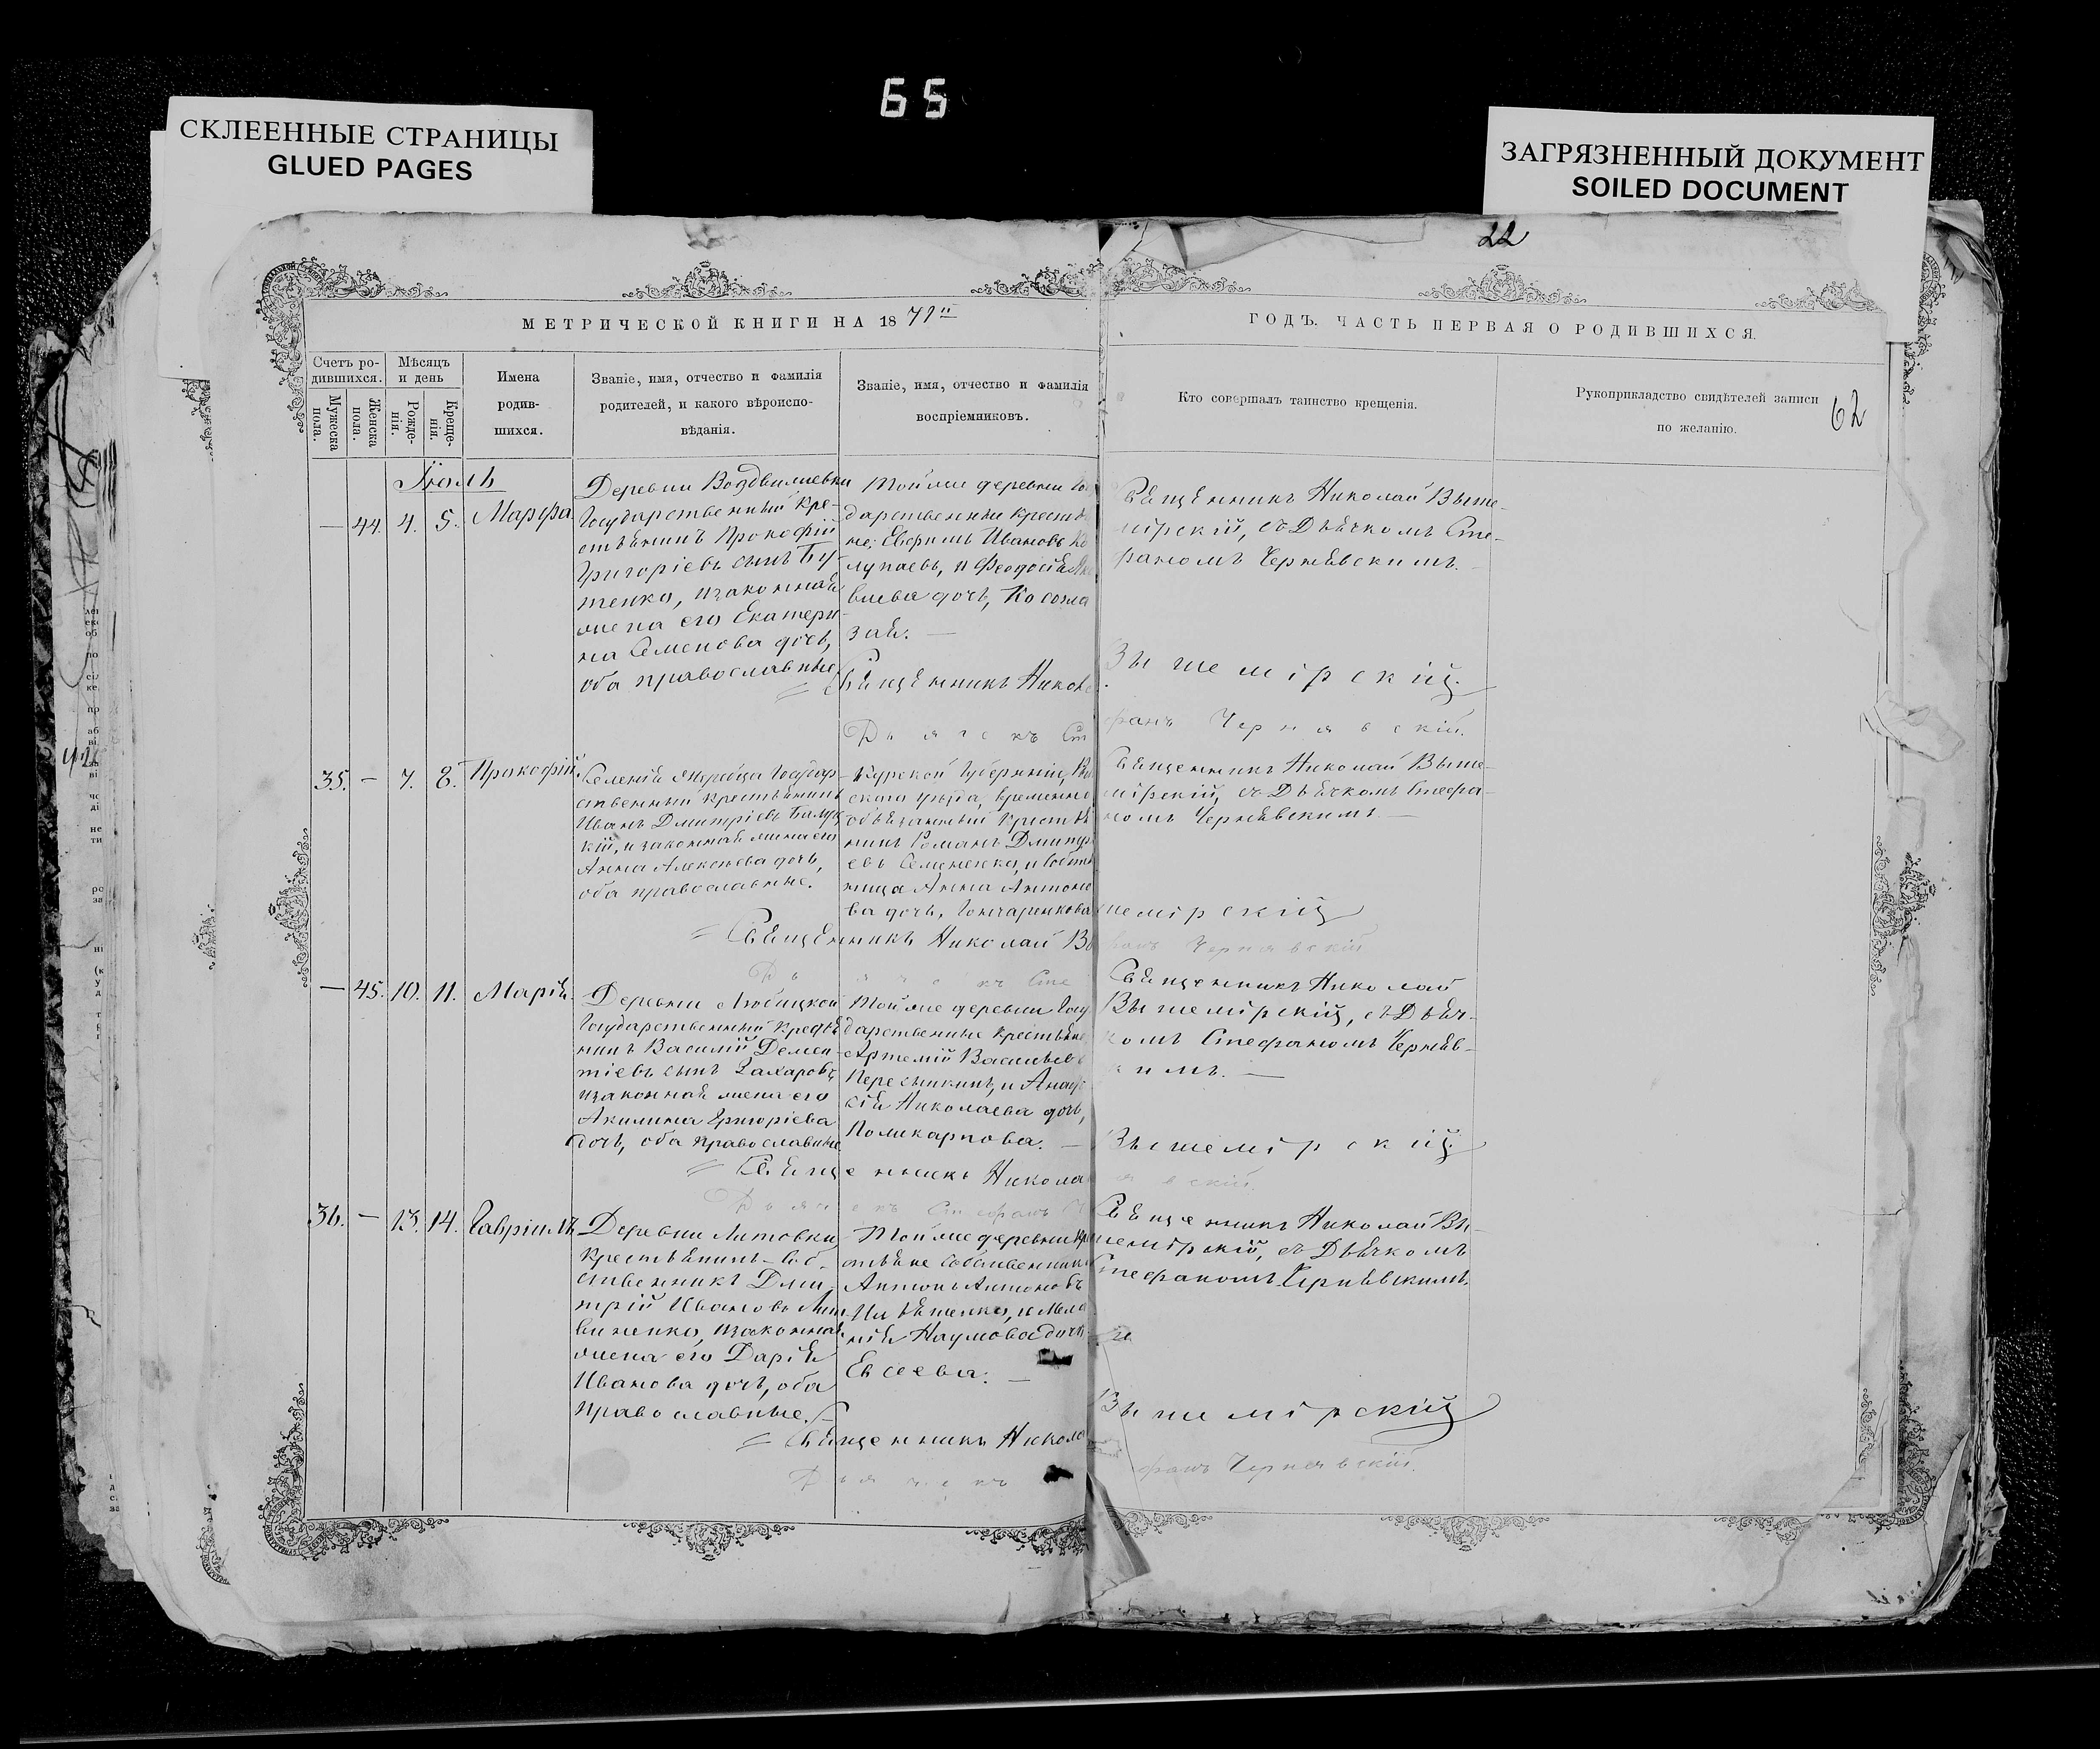 65
СКЛЕЕННЫЕ СТРАНИЦЫ
GLUED PAGES
ЗАГРЯЗНЕННЫЙ ДОКУМЕНТ
SOILED DOCUMENT
22
МЕТРИЧЕСКОЙ КНИГИ НА 1871
ГОДЪ. ЧАСТЬ ПЕРВАЯ О РОДИВШИХСЯ.
Счетъ ро-
дившихся.
Мужеска
пола.
Женска
пола.
Мѣсяцъ
и день
Рожде-
нія.
Креще-
нія.
Имена
родив-
шихся.
Званіе, имя, отчество и фамилія
родителей, и какого вѣроиспо-
вѣданія.
Званіе, имя, отчество и фамилія
воспріемниковъ.
Кто совершалъ таинство крещенія.
Рукоприкладство свидѣтелей записи
по желанію.
62
Іюль
— 44. 4. 5. Марѳа
Деревни Воздвижевки
Государственный Кре-
стьянинъ Прокофій
Григоріевъ сынъ Бу-
тенко, изаконная
жена его Екатери-
на Семенова дочь,
оба православные
Тойже деревни Госу
дарственные крестья
не: Евфимъ Ивановъ
лупаевъ, и Феодосія
влева дочь,
зая. —
Священникъ Николай Выше-
мірскій, съ Дьячкомъ Сте-
фаномъ Чернявскимъ. —
Священникъ Никола
Вышемірскій.
Дьячекъ Сте
фанъ Чернявскій.
35. — 7. 8. Прокофій.
Государ-
ственный крестьянинъ
Иванъ Дмитріевъ
кій, и законная жена его
Анна Алексѣева дочь,
оба православные.
Курской Губерніи,
скаго уѣзда, временно
обязанный Крестья
нинъ Романъ Дмитрі
евъ Семененко, и
ница Анна Антоно
ва дочь, Гончаренкова
Священникъ Николай Выше-
мірскій, съ Дьячкомъ Стефа-
номъ Чернявскимъ. —
Священникъ Николай Вы
шемірскій
Дьячекъ Сте
фанъ Чернявскій
— 45. 10. 11. Марія.
Деревни Любицкой
Государственный Крестья
нинъ Василій Демен-
тіевъ сынъ Захаровъ,
изаконная жена его
Акилина Григоріева
дочь, оба православные
Тойже деревни Госу
дарственные крестьяне,
Артемій Васильевъ
Пересыпкинъ, и Анаста
сія Николаева дочь,
Поликарпова. —
Священникъ Николай
Вышемірскій, съ Дьяч-
комъ Стефаномъ Черняв-
кимъ. —
Священникъ Никола
Вышемірскій
Дьячекъ Стефанъ
явскій.
36. — 13. 14. Гавріилъ
Деревни Литовки
Крестьянинъ-Соб-
ственникъ Дми-
трій Ивановъ Лит
виненко, изаконная
жена его Дарія
Иванова дочь, оба
православные.
Тойже деревни Кре
стьяне собственники
Антонъ Антоновъ
Ильяшенко, и Мела
нія Наумова дочь
Евсеева. —
Священникъ Николай Вы-
шемірскій, съ Дьячкомъ
Стефаномъ Чернявскимъ.
Священникъ Никола
Вышемірскій
Дьячекъ
фанъ Чернявскій.